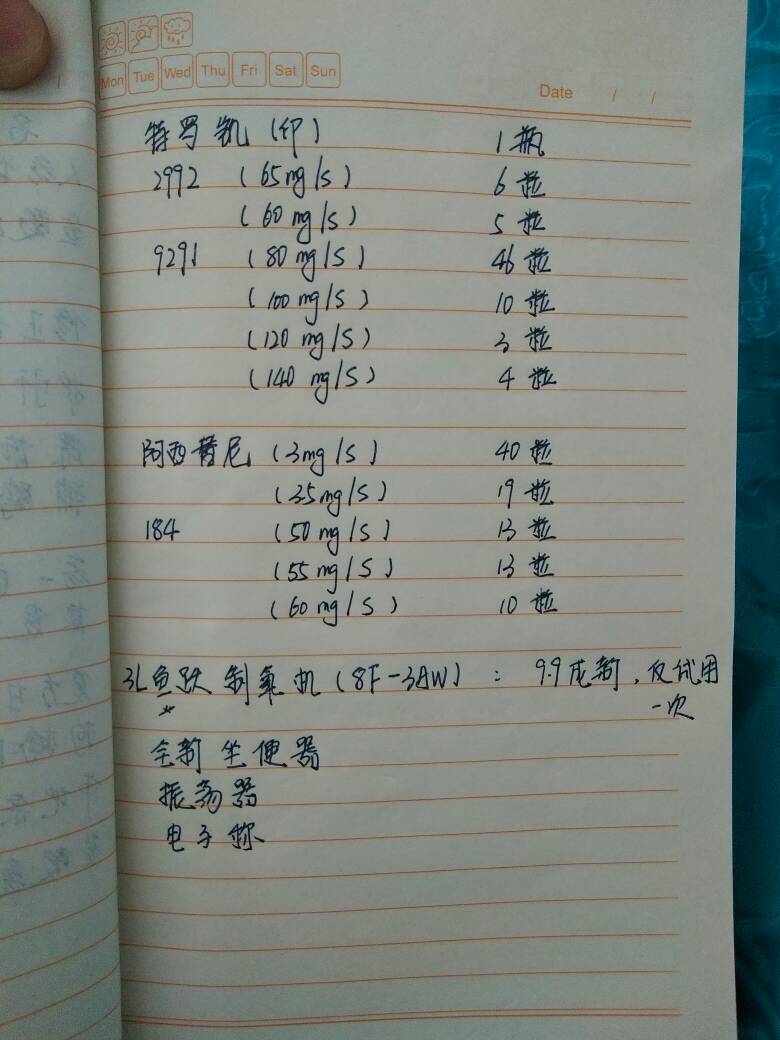 Mon Tue Wed Thu Fri Sat Sun
Date / /
特罗凯(印) 1瓶
2992 (65mg/s) 6粒
(60mg/s) 5粒
9291 (80mg/s) 46粒
(100mg/s) 10粒
(120mg/s) 3粒
(140mg/s) 4粒
阿西替尼(3mg/s) 40粒
(35mg/s) 19粒
184 (50mg/s) 13粒
(55mg/s) 13粒
(60mg/s) 10粒
3L鱼跃制氧机(8F-3AW): 9.9成新,仅试用
一次
全新坐便器
振荡器
电子称